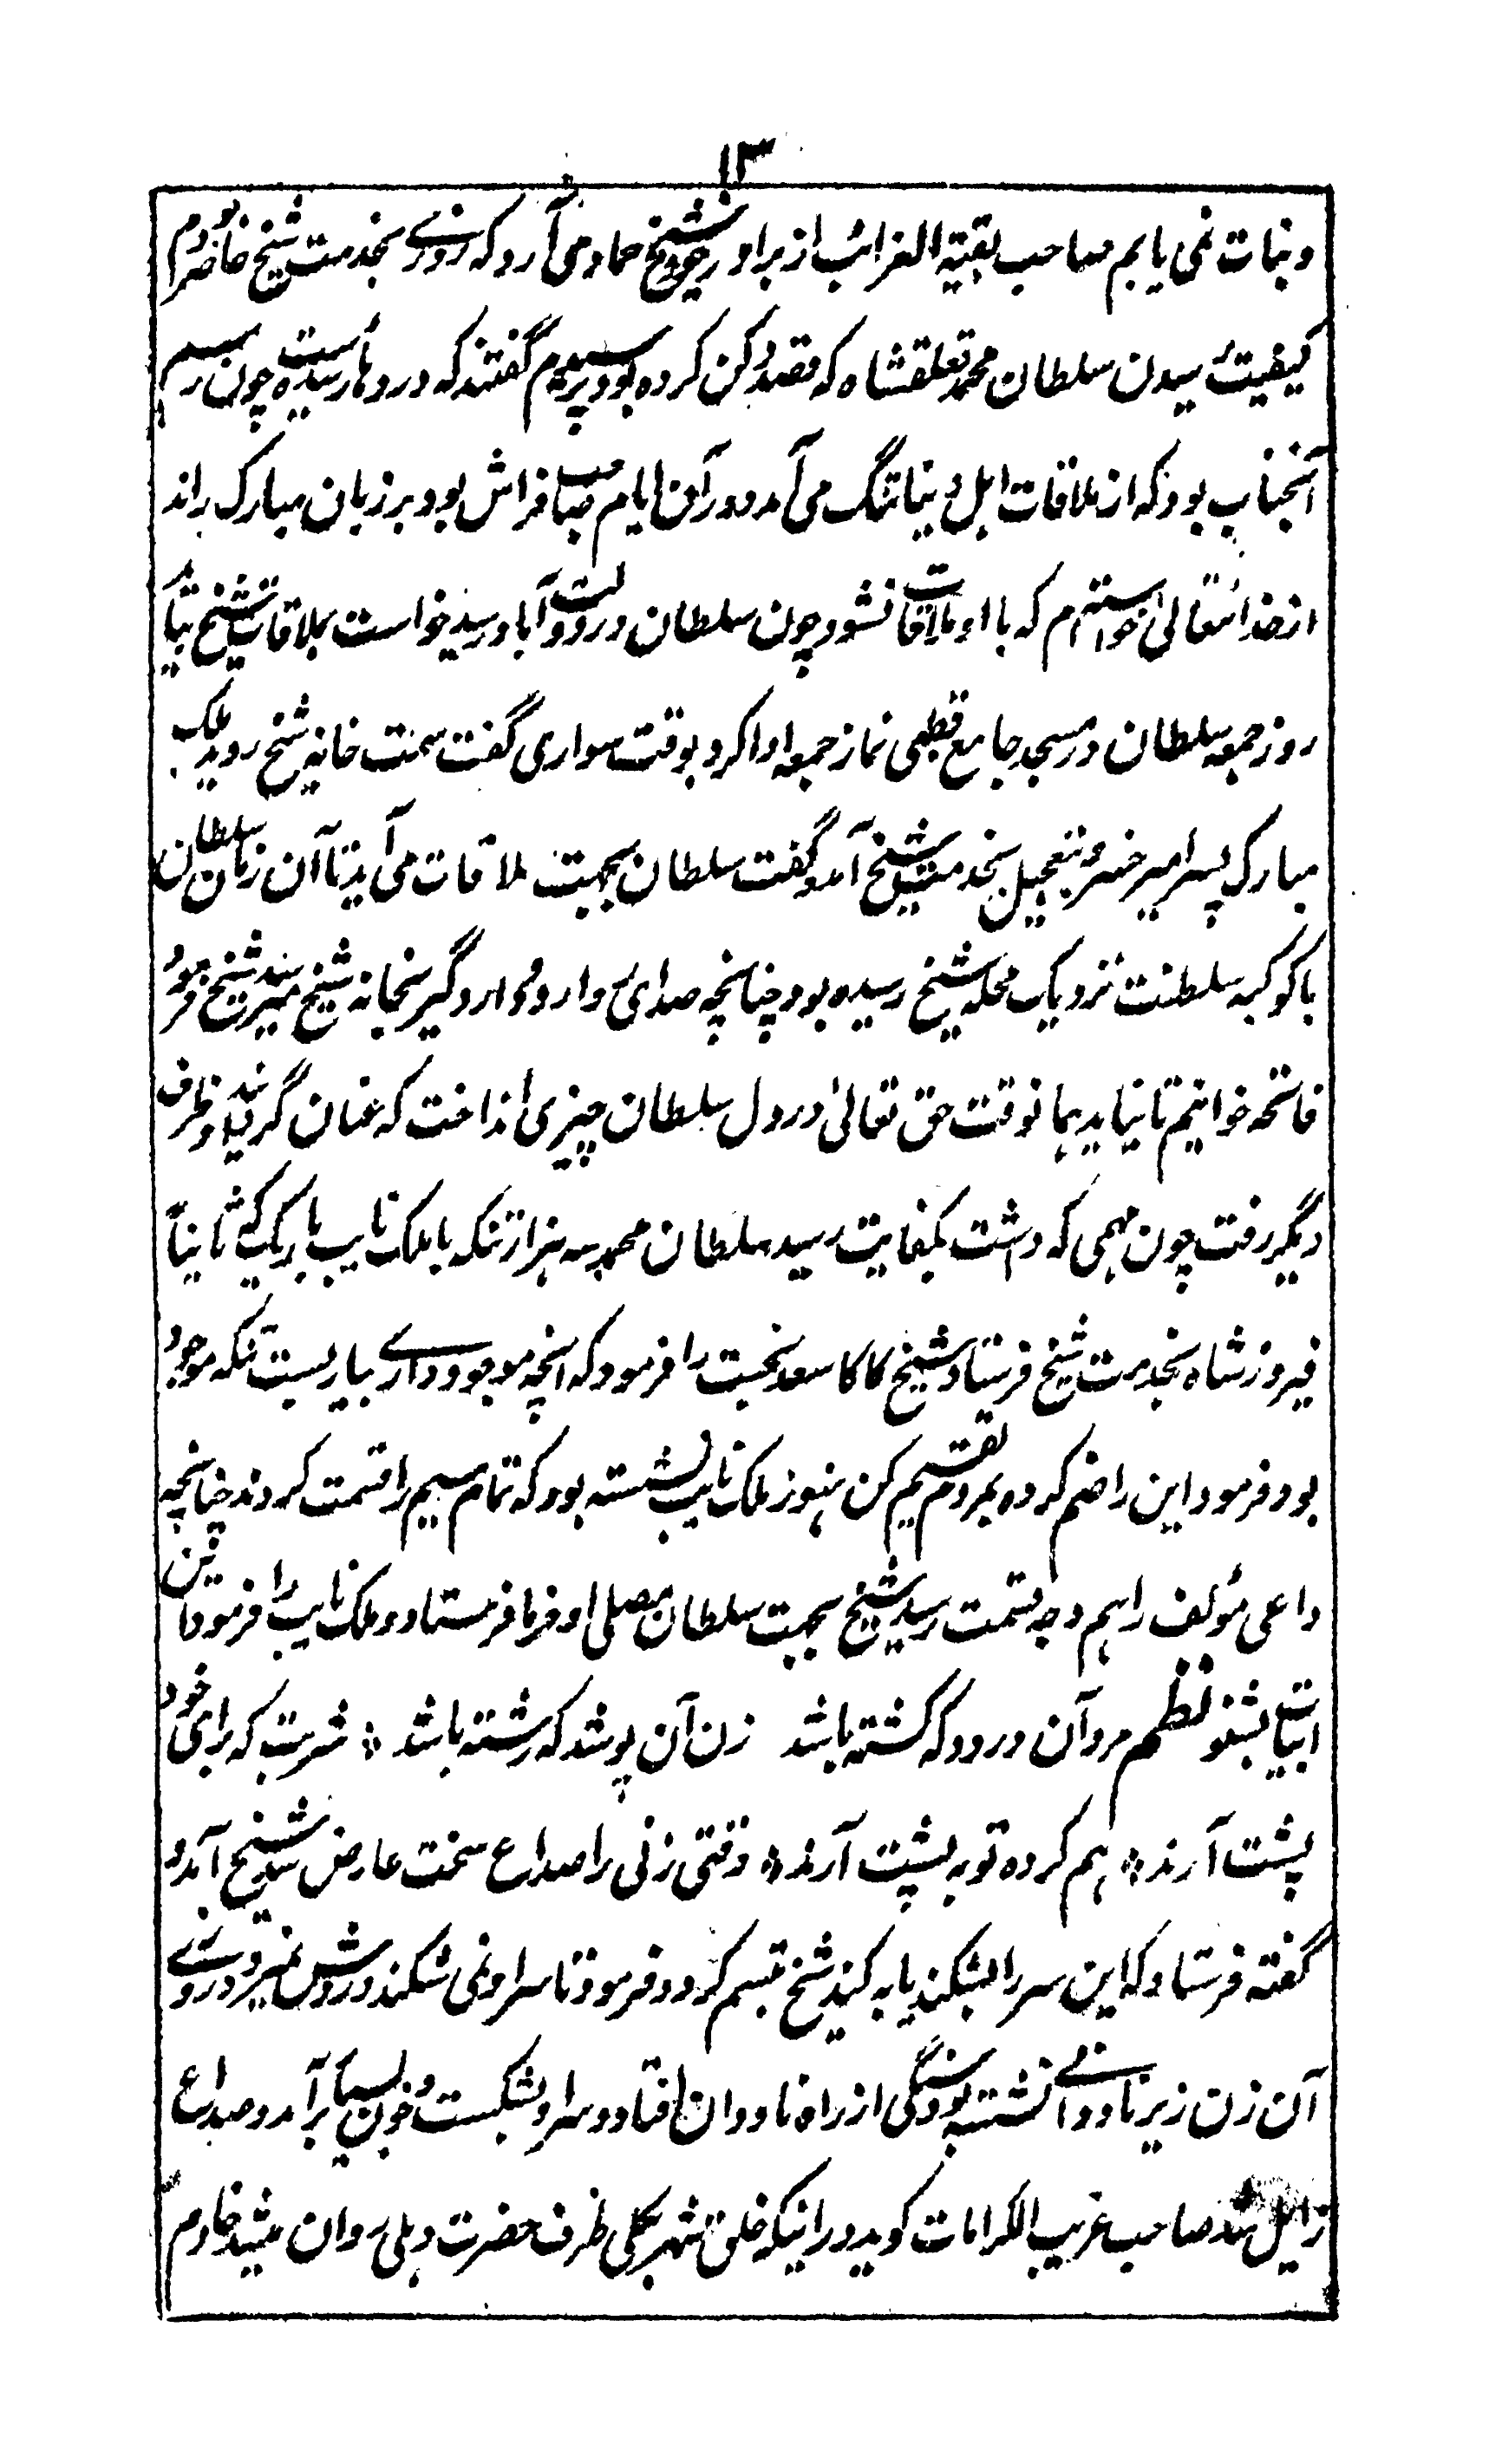 ۱۳
و نبات نمی یابم صاحب بقیة الغرائب از برادر خود شیخ حماد می آرد که روزی بخدمت شیخ حاضر بودم
کیفیت رسیدن سلطان محمد تغلقشاه که قصد دکن کرده بود پرسیدم گفتند که در دهار رسیده است چون رسم
آنجناب بود که از ملاقات اهل دنیا تنگ می آمد و در آن ایام صاحب فراش بود بر زبان مبارک راند
از خدا تعالیٰ خواسته ام که با او ملاقات نشود چون سلطان در دولت آباد رسید خواست بملاقات شیخ بیآید
روز جمعه سلطان در مسجد جامع قطبی نماز جمعه ادا کرد بوقت سواری گفت سمت خانه شیخ روید ملک
مبارک پسر امیر خسرو بتعجیل بخدمت شیخ آمد و گفت سلطان بجهت ملاقات می آید تا آن زمان سلطان
با کوکبه سلطنت نزدیک محله شیخ رسیده بود چنانچه صدای وارد و دارد گیر بخانه شیخ میرسید شیخ فرمود
فاتحه خوانیم تا نیاید همانوقت حق تعالیٰ در دل سلطان چیزی انداخت که عنان گردانید و طرف
دیگر رفت چون مهمی که داشت بکفایت رسید سلطان محمد سه هزار تنکه با ملک نایب باربک که ثانیاً
فیروز شاه بخدمت شیخ فرستاد شیخ کاکا سعد بخت را فرمود که آنچه موجود داری بیار بیست تنکه موجود
بود فرمود این را ضم کرده بمردم تقسیم کن هنوز ملک نایب نشسته بود که تمام سیم را قسمت کردند چنانچه
داعی مؤلف را هم وجه قسمت رسید شیخ بجهت سلطان مصلی و خرما فرستاد و ملک نایب را فرمود این
ابیات بشنو نظم مرد آن درود که کشته باشد زن آن پوشد که رشته باشد ؞ شربت که برای خود
پشت آرند ؞ هم کرده تو به پشت آرند ؞ وقتی زنی را صداع سخت عارض شد شیخ آمد و
گفته فرستاد که این سر را بشکند یا به کند شیخ تبسم کرد و فرمود تا سر او نمی شکند دردش نمیرود روزی
آن زن زیر ناودانی نشسته بود سنگی از راه ناودان افتاد و سر او بشکست و خون بسیار برآمد و صداع
زایل شد صاحب غریب الکرامات گوید در اینکه خلق شهر بکلی طرف حضرت دهلی روان میشد خادم